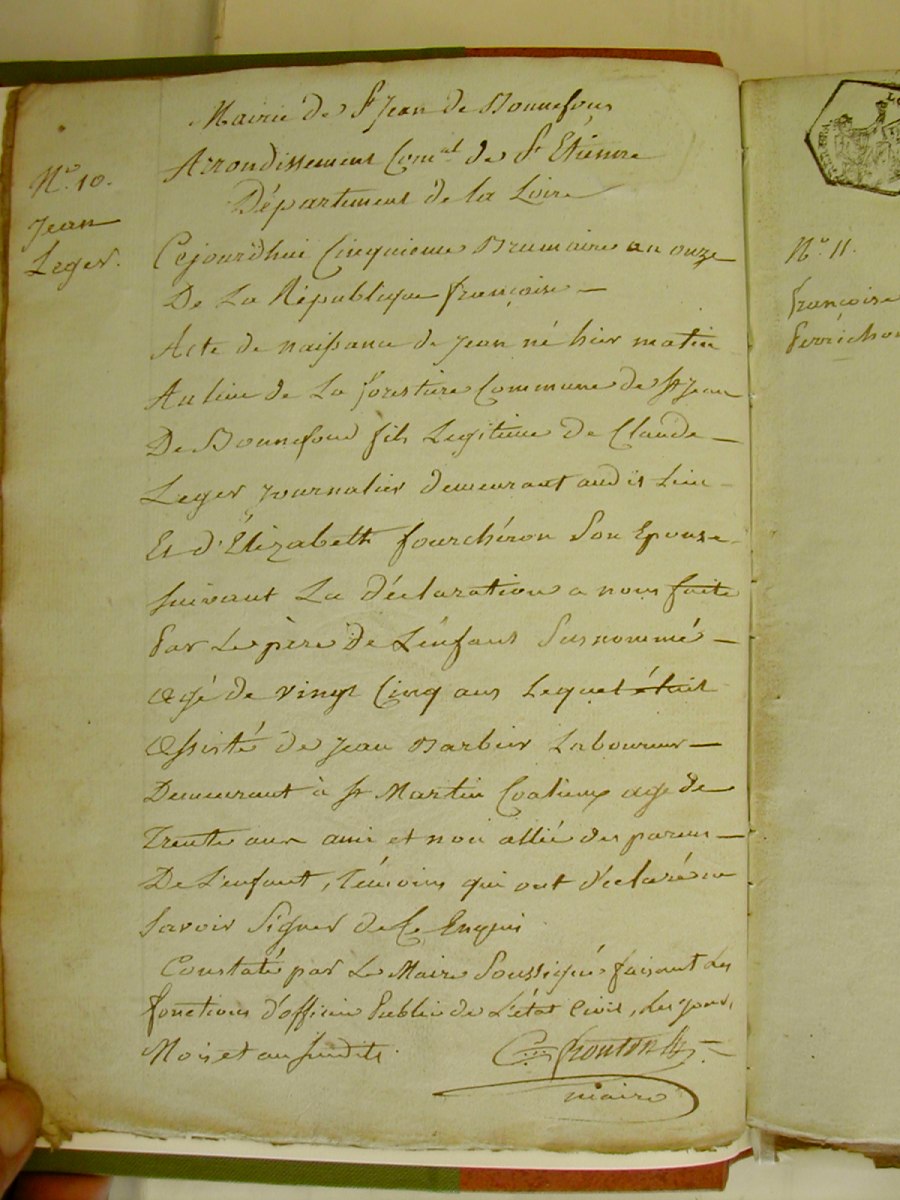 Mairie de St Jean de Bonnefons
Arrondissement Com.al de St Etienne
Département de la Loire
No. 10.
Jean
Leger.
Cejourdhui Cinquieme Brumaire an onze
De La République françoise —
Acte de naissance de jean né hier matin
Au lieu de La forestiere Commune de St Jean
De Bonnefond fils Legitime de Claude —
Leger journalier demeurant audit Lieu —
Et d'Élizabeth fourchéron Son Epouse
Suivant La déclaration a nous faite
Par Le père de L'enfant Susnommé —
agé de vingt Cinq ans Lequel était
assisté de jean Barbier Laboureur —
Demeurant à St Martin Coalieux agé de
Trente ans ami et non allié des parens —
De L'enfant, témoins qui ont déclaré ne
Savoir Signer de Ce Enquis
Constaté par Le Maire Soussigné faisant les
fonctions d'officier Public de L'état Civil, les jour,
Mois et an Susdits.
maire
No 11.
françoise